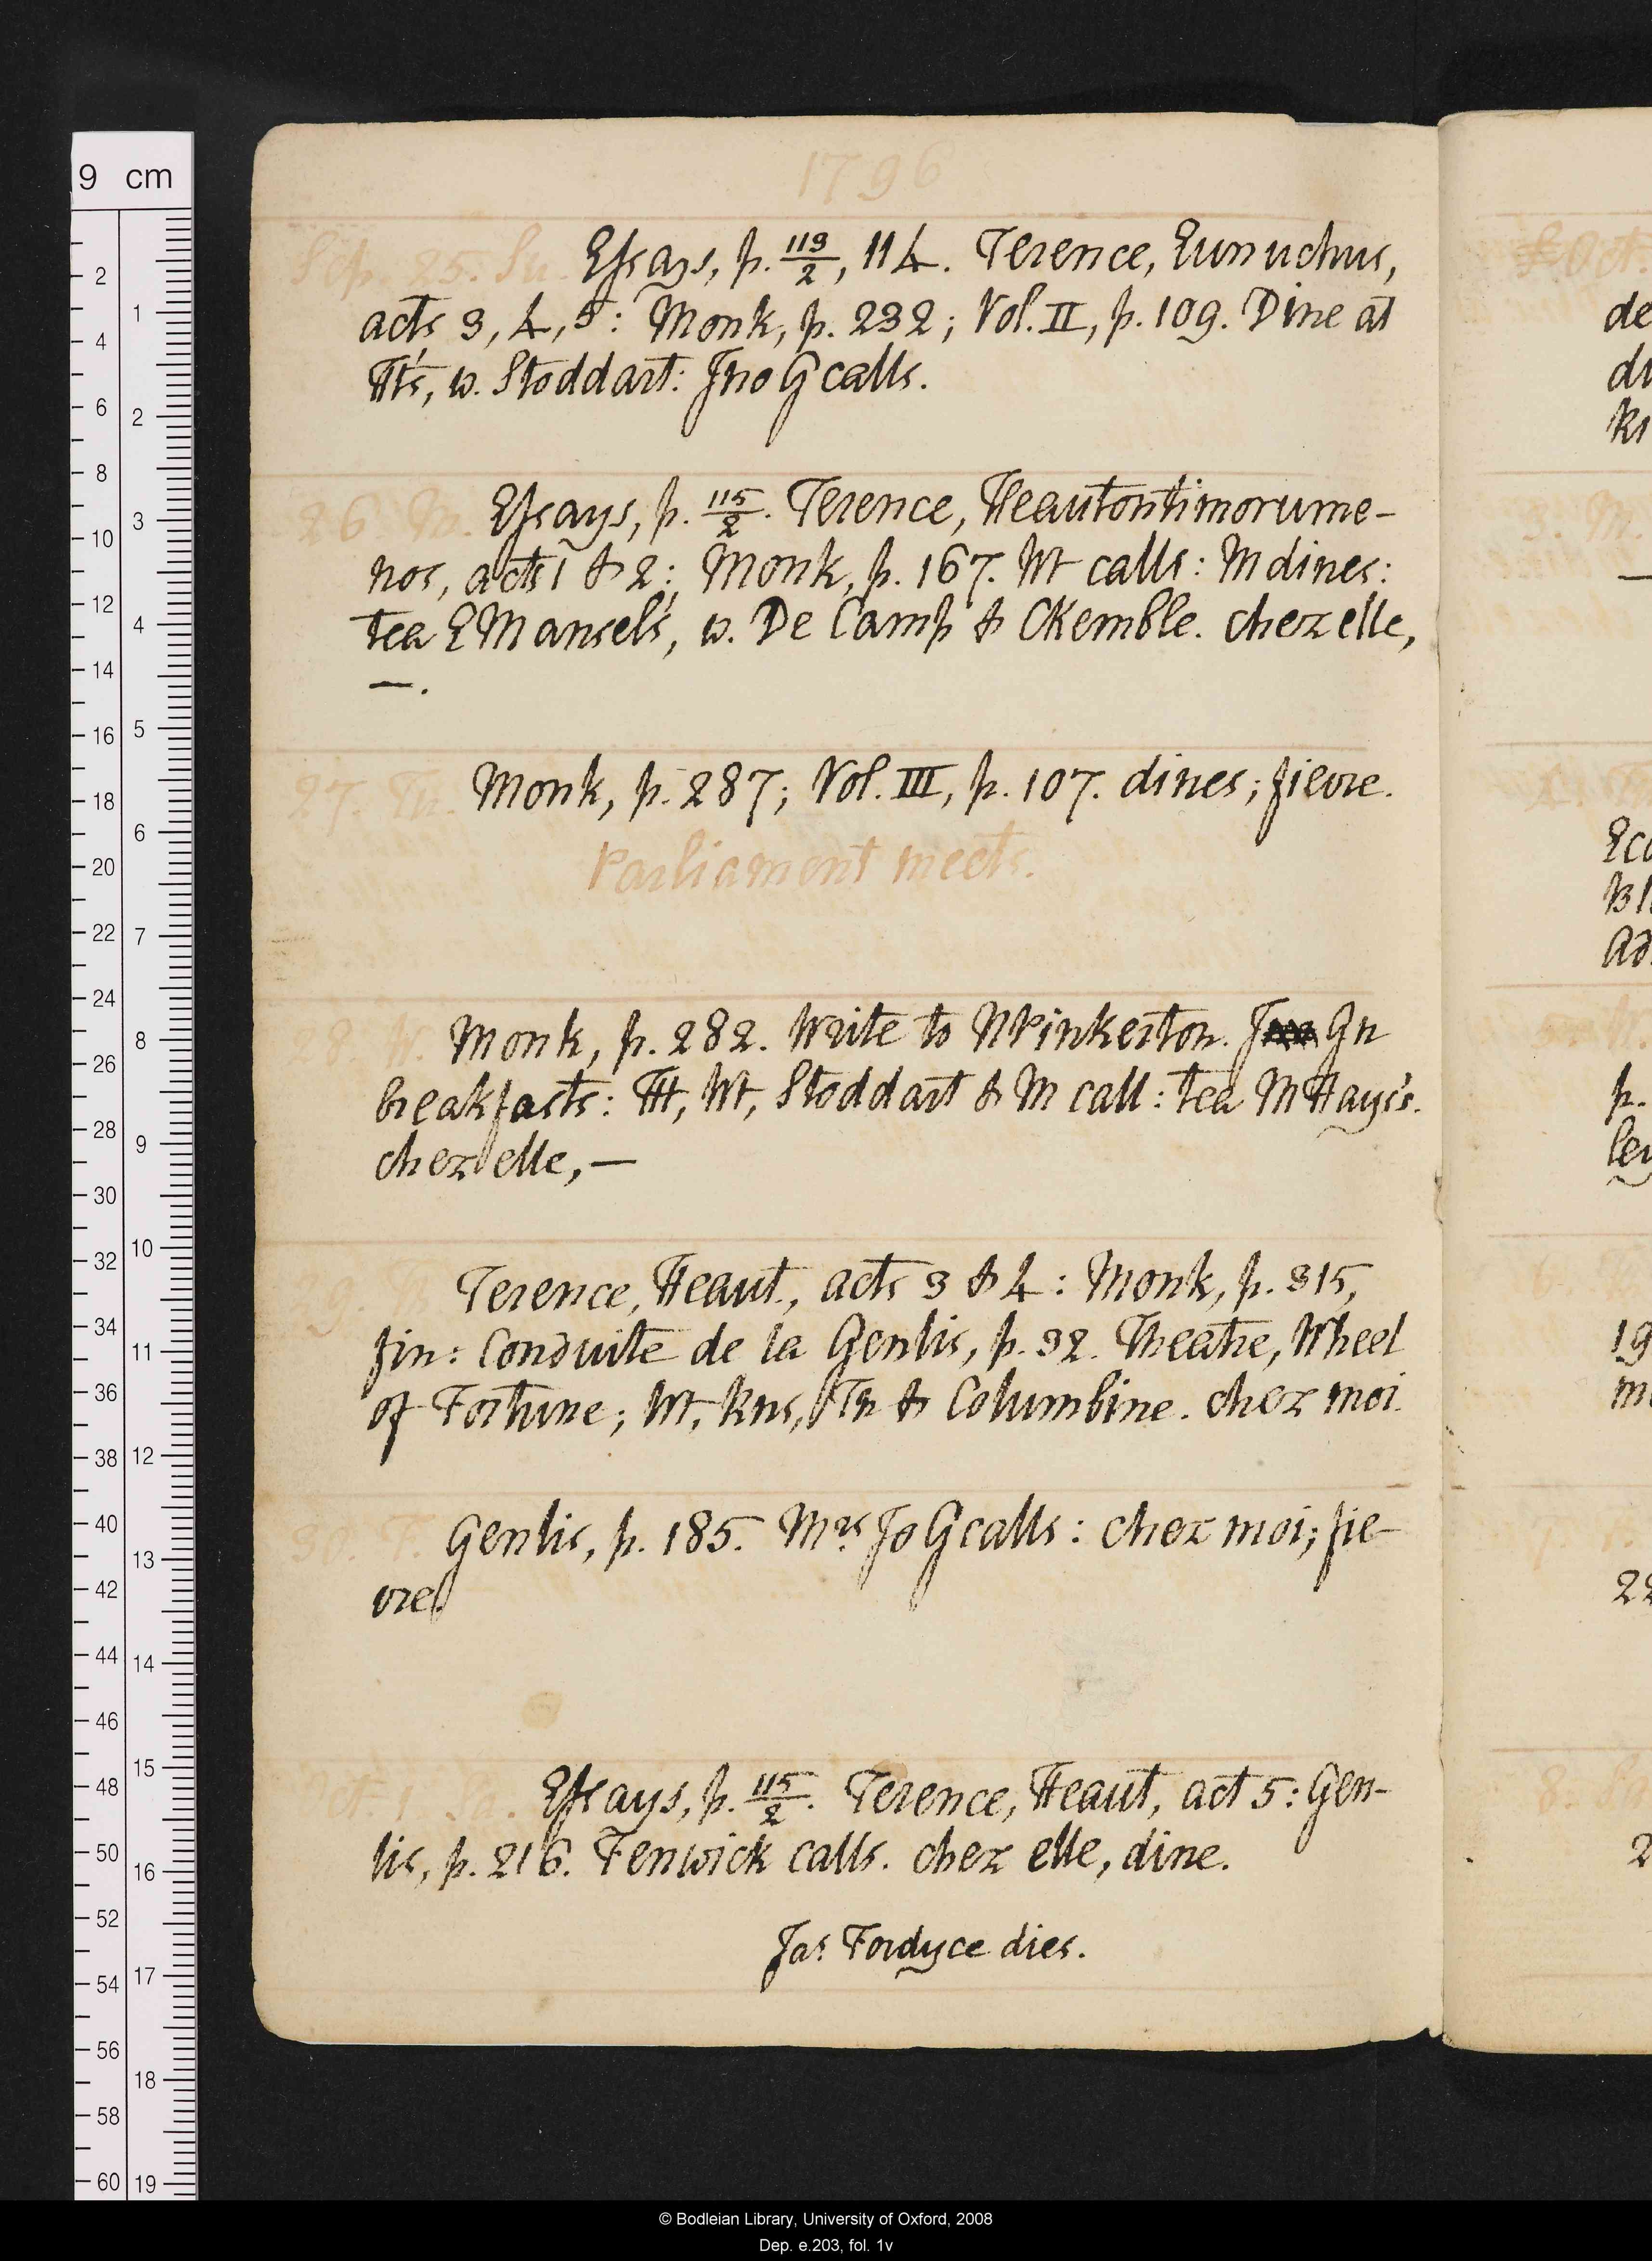 1796
Sep. 25. Su. Eſsays, p. 113/2, 114. Terence, Eunuchus,
acts 3, 4, 5: Monk, p. 232; Vol. II, p. 109. Dine at
Ht's, w. Stoddart: Jno G calls.
26. M. Eſsays, p. 115/2. Terence, Heautontimorume-
nos, acts 1 & 2: Monk, p. 167. Wt calls: M dines:
tea E Mansel's, w. De Camp & C Kemble. chez elle,
—.
27. Tu. Monk, p. 287; Vol. III, p. 107. dines; fievre.
Parliament meets.
28. W. Monk, p. 282. Write to N Pinkerton. Gn
breakfasts: Ht, Wt, Stoddart & M call: tea M Hays's.
chez elle, —
Terence, Heaut, acts 3 & 4: Monk, p. 315,
fin: Conduite de la Genlis, p. 32. Theatre, Wheel
of Fortune; Wt, Rns, Tn & Columbine. chez moi.
30. F. Genlis, p. 185. Mrs Jo G calls: chez moi; fie-
vre.
Oct. 1. Su. Eſsays, p. 115/2. Terence, Heaut, act 5: Gen-
lis, p. 216. Fenwick calls. chez elle, dine.
Jas Fordyce dies.
9 cm
© Bodleian Library, University of Oxford, 2008
Dep. e.203, fol. 1v